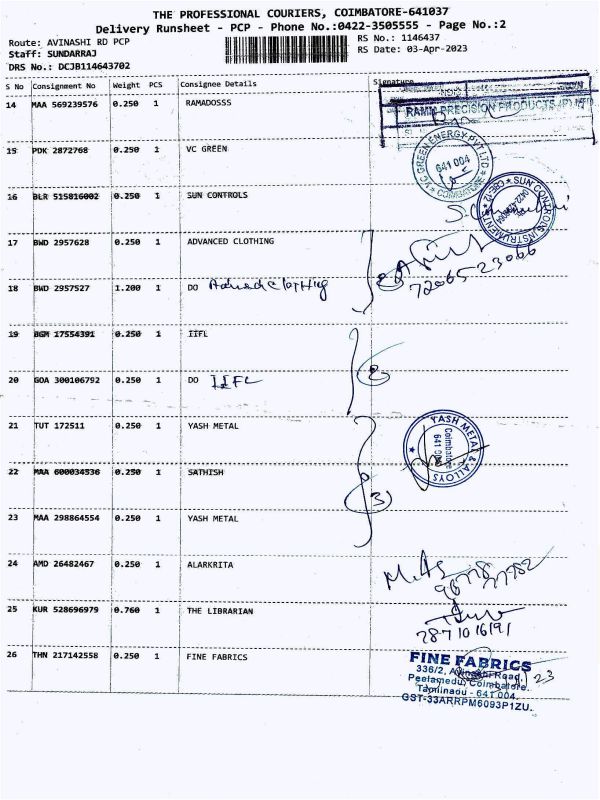 THE PROFESSIONAL COURIERS, COIMBATORE-641037
Delivery Runsheet - PCP - Phone No.:0422-3505555 - Page No.:2
Route: AVINASHI RD PCP
RS No.: 1146437
Staff: SUNDARRAJ
RS Date: 03-Apr-2023
DRS No.: DCJB114643702
S No Consignment No Weight PCS Consignee Details Signature
14 MAA 569239576 0.250 1 RAMADOSSS
RAMM PRECISION PRODUCTS (P) LTD
15 PDK 2872768 0.250 1 VC GREEN
VC GREEN ENERGY PVT LTD
641 004
COIMBATORE
16 BLR 515816002 0.250 1 SUN CONTROLS
SUN CONTROL INSTRUMENT CBE-12
17 BWD 2957628 0.250 1 ADVANCED CLOTHING
2
7206523066
18 BWD 2957527 1.200 1 DO Advanced Clothing
19 BGM 17554391 0.250 1 IIFL
2
20 GOA 300106792 0.250 1 DO IIFL
21 TUT 172511 0.250 1 YASH METAL
YASH METAL & ALLOYS
Coimbatore
641
22 MAA 600034536 0.250 1 SATHISH
3
23 MAA 298864554 0.250 1 YASH METAL
24 AMD 26482467 0.250 1 ALARKRITA
25 KUR 528696979 0.760 1 THE LIBRARIAN
7871016191
26 THN 217142558 0.250 1 FINE FABRICS
FINE FABRICS
336/2, Avinashi Road,
Peelamedu, Coimbatore.
Tamilnadu - 641 004.
GST-33ARRPM6093P1ZU.
23